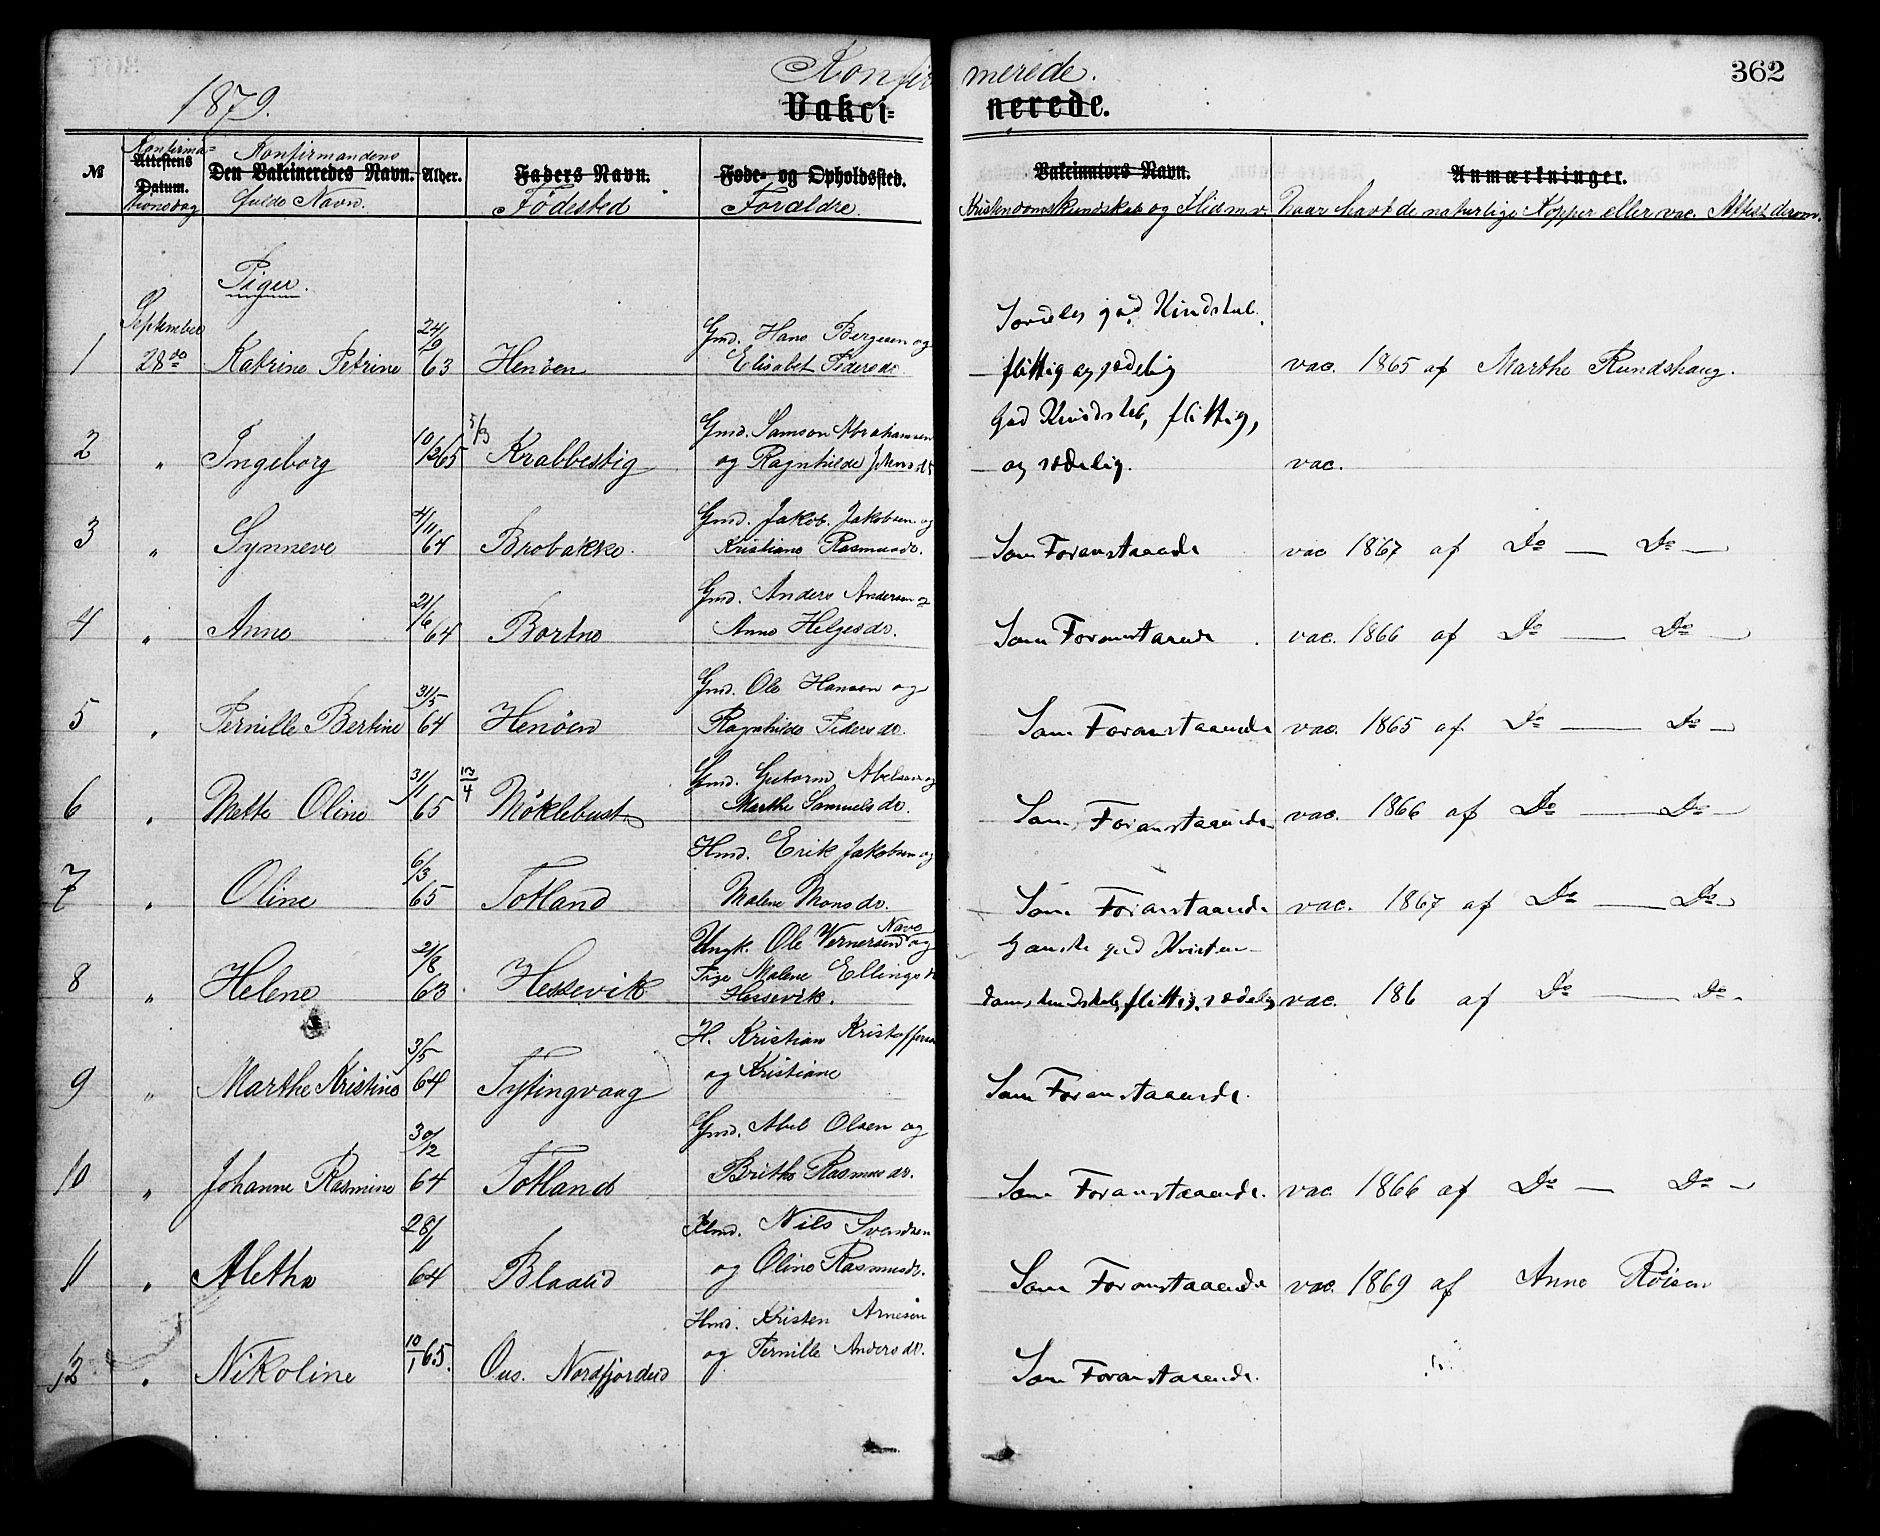 Konfirmerede.
362
1879.
Vakcinerede.
№ Attestens Datum. Den Vakcineredes Navn. Alder. Faders Navn. Føde- og Opholdssted. Vakcinators Navn. Anmærkninger.
Konfirma= Konfirmandens fulde Navn. Fødested Forældre. Kristendomskundskab og Flid m.v. Naar havt de naturlige Kopper eller vac. Attest derom.
Piger.
September
1 28de Katrine Petrine 24/9 63 Henöen Gmd. Hans Bergesen og Elisabet Pedersdr. Særdeles god Kundskab, flittig og sædelig vac. 1865 af Marthe Rundshaug.
2 " Ingeborg 10/12 65 5/3 Krabbestig Gmd. Samson Abrahamsen og Ragnhilde Jensdr God Kundskab, flittig, og sædelig. vac.
3 " Synneve 4/11 64 Brobakke. Gmd. Jakob Jakobsen og Kristiane Rasmusdr. Som Foranstaaende vac 1867 af Do — Do —
4 " Anne 21/6 64 Bortne Gmd. Anders Andersen og Anne Helgesdr. Som Foranstaaende vac. 1866 af Do — Do —
5 " Pernille Bertine 31/5 64 Henöen Gmd. Ole Hansen og Ragnhilde Pedersdr. Som Foranstaaende vac. 1865 af Do — Do —
6 " Mette Oline 31/1 65 13/4 Möklebust Gmd. Guttorm Abelsen og Marthe Samuelsdr. Som Foranstaaende vac. 1866 af Do — Do —
7 " Oline 6/3 65 Totland Hmd. Erik Jakobsen og Malene Monsdr. Som Foranstaaende vac. 1867 af Do — Do —
8 " Helene 21/8 63 Hessevik Ungk. Ole Vernersen Nave og Pige Malene Ellingsdr Hessevik. Ganske god Kristendomskundskab, flittig, sædelig vac. 186 af Do — Do —
9 " Marthe Kristine 3/5 64 Tytingvaag H. Kristian Kristoffersen og Kristiane Som Foranstaaende.
10 " Johanne Rasmine 30/12 64 Totland Gmd. Abel Olsen og Brithe Rasmusdr. Som Foranstaaende. vac. 1866 af Do — Do —
11 " Alethe 28/11 64 Blaalid Hmd. Nils Svendsen og Oline Rasmusdr. Som Foranstaaende vac. 1869 af Anne Röisen
12 " Nikoline 10/1 65. Ous. Nordfjordeid Hmd. Kristen Arnesen og Pernille Andersdr. Som Foranstaaende.